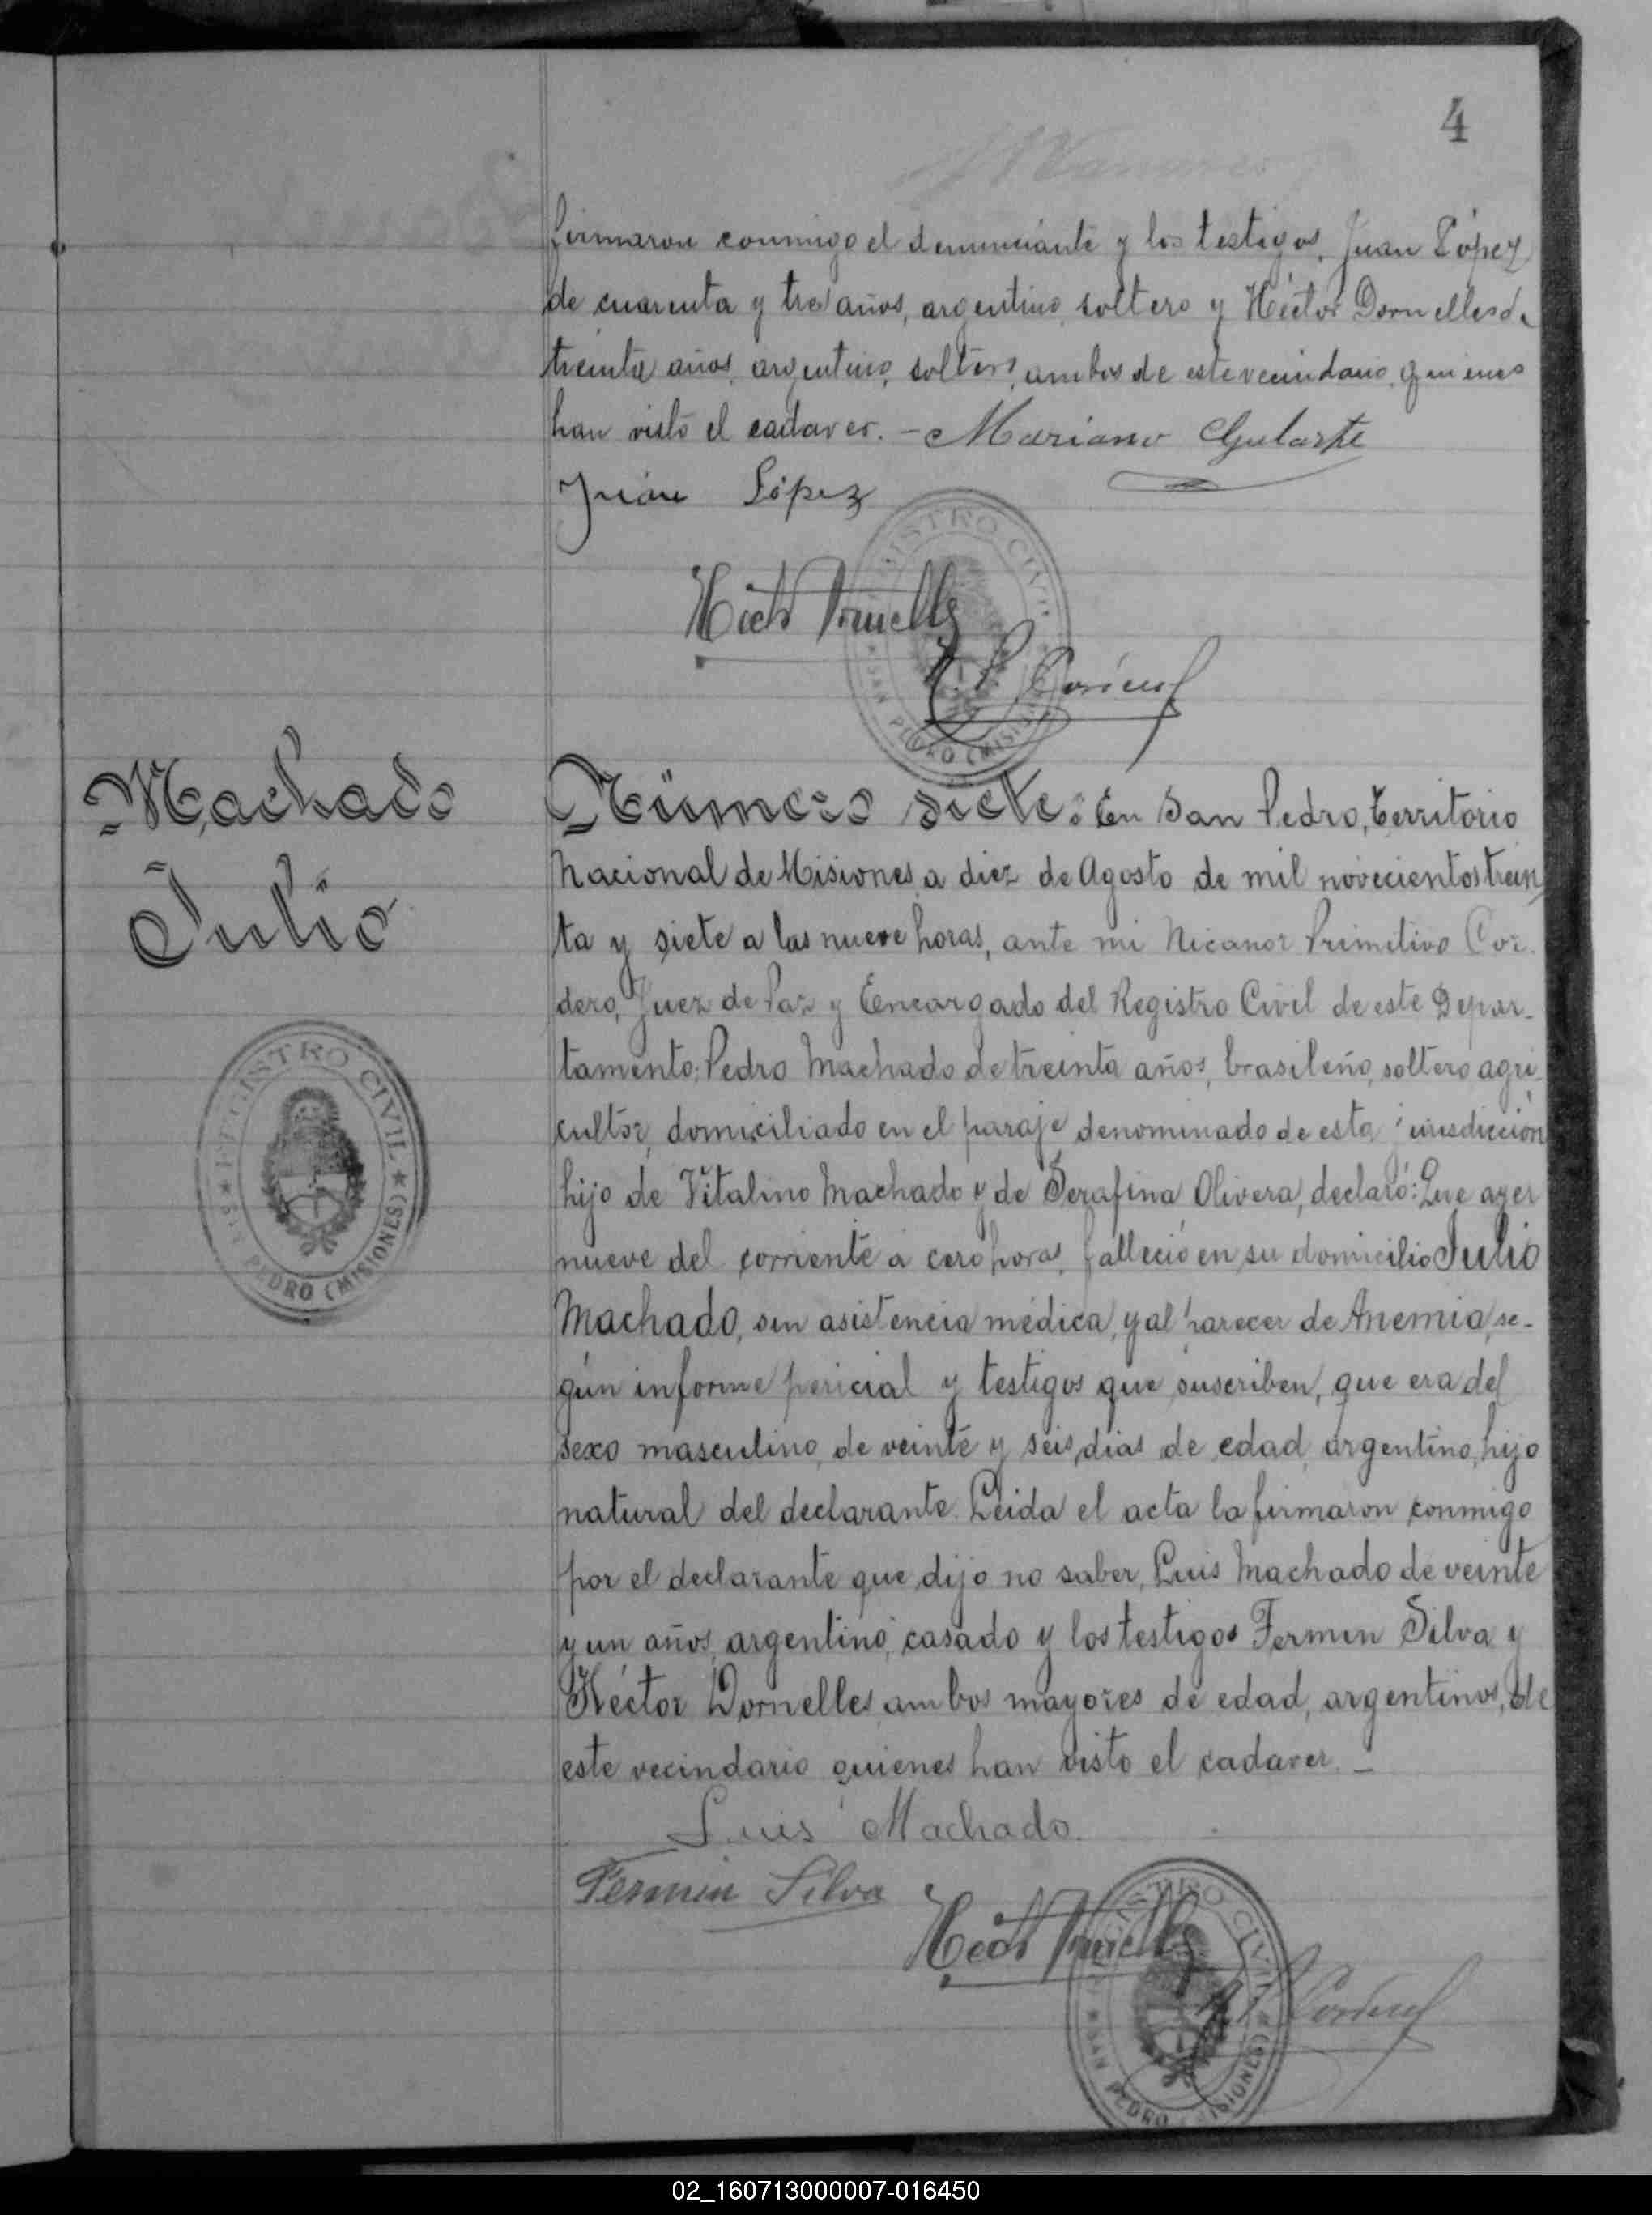 4
firmaron conmigo el denunciante y los testigos, Juan López
de cuarenta y tres años, argentino, soltero y Héctor Dornelles de
treinta años, argentino, soltero, ambos de este vecindario, quienes
han visto el cadaver. - Mariano Gularte
Juan López
REGISTRO CIVIL
SAN PEDRO (MISIONES)
Machado
Julio
REGISTRO CIVIL
SAN PEDRO (MISIONES)
Número siete: En San Pedro, Territorio
Nacional de Misiones a diez de Agosto de mil novecientos trein
ta y siete a las nueve horas, ante mi Nicanor Primitivo Cor-
dero, Juez de Paz y Encargado del Registro Civil de este Depar-
tamento: Pedro Machado de treinta años, brasileño, soltero agri-
cultor, domiciliado en el paraje denominado de esta jurisdicción
hijo de Vitalino Machado y de Serafina Olivera, declaró: Que ayer
nueve del corriente a cero horas, falleció en su domicilio Julio
Machado, sin asistencia médica, y al parecer de Anemia, se-
gún informe pericial y testigos que suscriben, que era del
sexo masculino, de veinte y seis dias de edad, argentino, hijo
natural del declarante. Leida el acta la firmaron conmigo
por el declarante que dijo no saber, Luis Machado de veinte
y un años, argentino, casado y los testigos Fermin Silva y
Héctor Dornelles, ambos mayores de edad, argentinos, de
este vecindario quienes han visto el cadaver. -
Luis Machado.
Fermin Silva
REGISTRO CIVIL
SAN PEDRO (MISIONES)
02_160713000007-016450